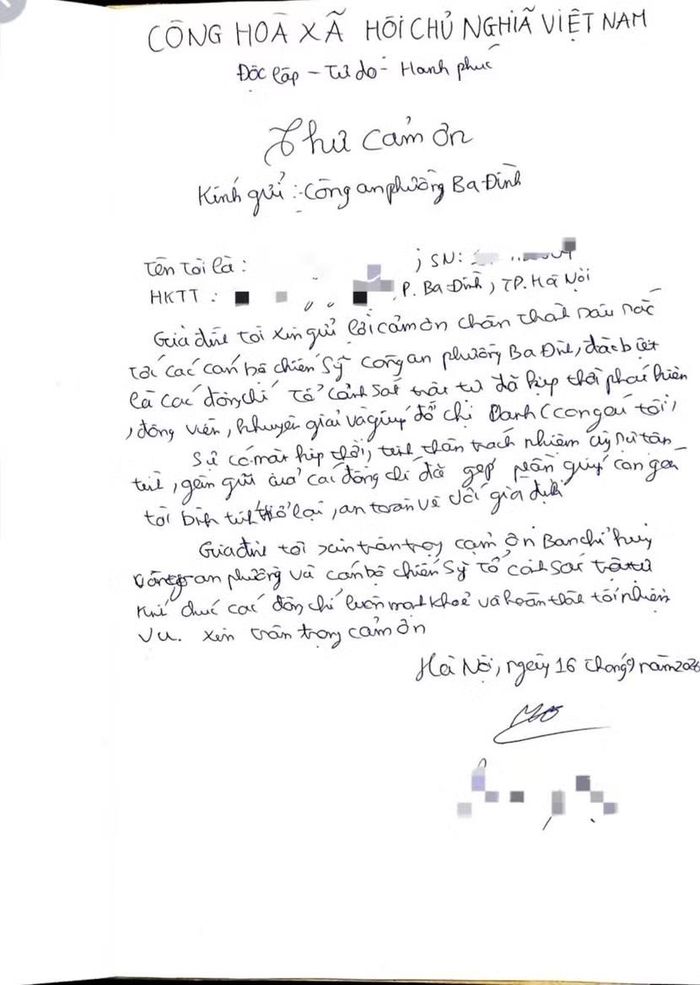 CÔNG HOÀ XÃ HÔI CHỦ NGHĨÃ VIỆT NAM
Độc lập - Tự do - Hanh phúc
Thư cảm ơn
Kính gửi : Công an phường Ba Đình
Tên tôi là : ; SN:
HKTT : , P. Ba Đình, TP. Hà Nội
Gia đình tôi xin gửi lời cảm ơn chân that sâu sắc
tới các can bộ chiến sỹ công an phường Ba Đình, đăc biệt
là các đồng chí tổ cảnh sát trât tự đã kịp thời phát hiên
, đông viên, khuyên giải và giúp đỡ chị (con gái tôi)
Sự có măt kịp thời, tinh thần trách nhiệm cùng sự tân
tình, gần gũi của các đồng chí đã góp phần giúp con gái
tôi bình tĩnh trở lại, an toàn về với gia đình
Gia đình tôi xin trân trọng cảm ơn Ban chỉ huy
công an phường và cán bộ chiến sỹ tổ cảnh sát trât tự
Kính chúc các đồng chí luôn mạnh khoẻ và hoàn thành tốt nhiêm
vụ. Xin trân trọng cảm ơn
Hà Nội, ngày 16 tháng 9 năm